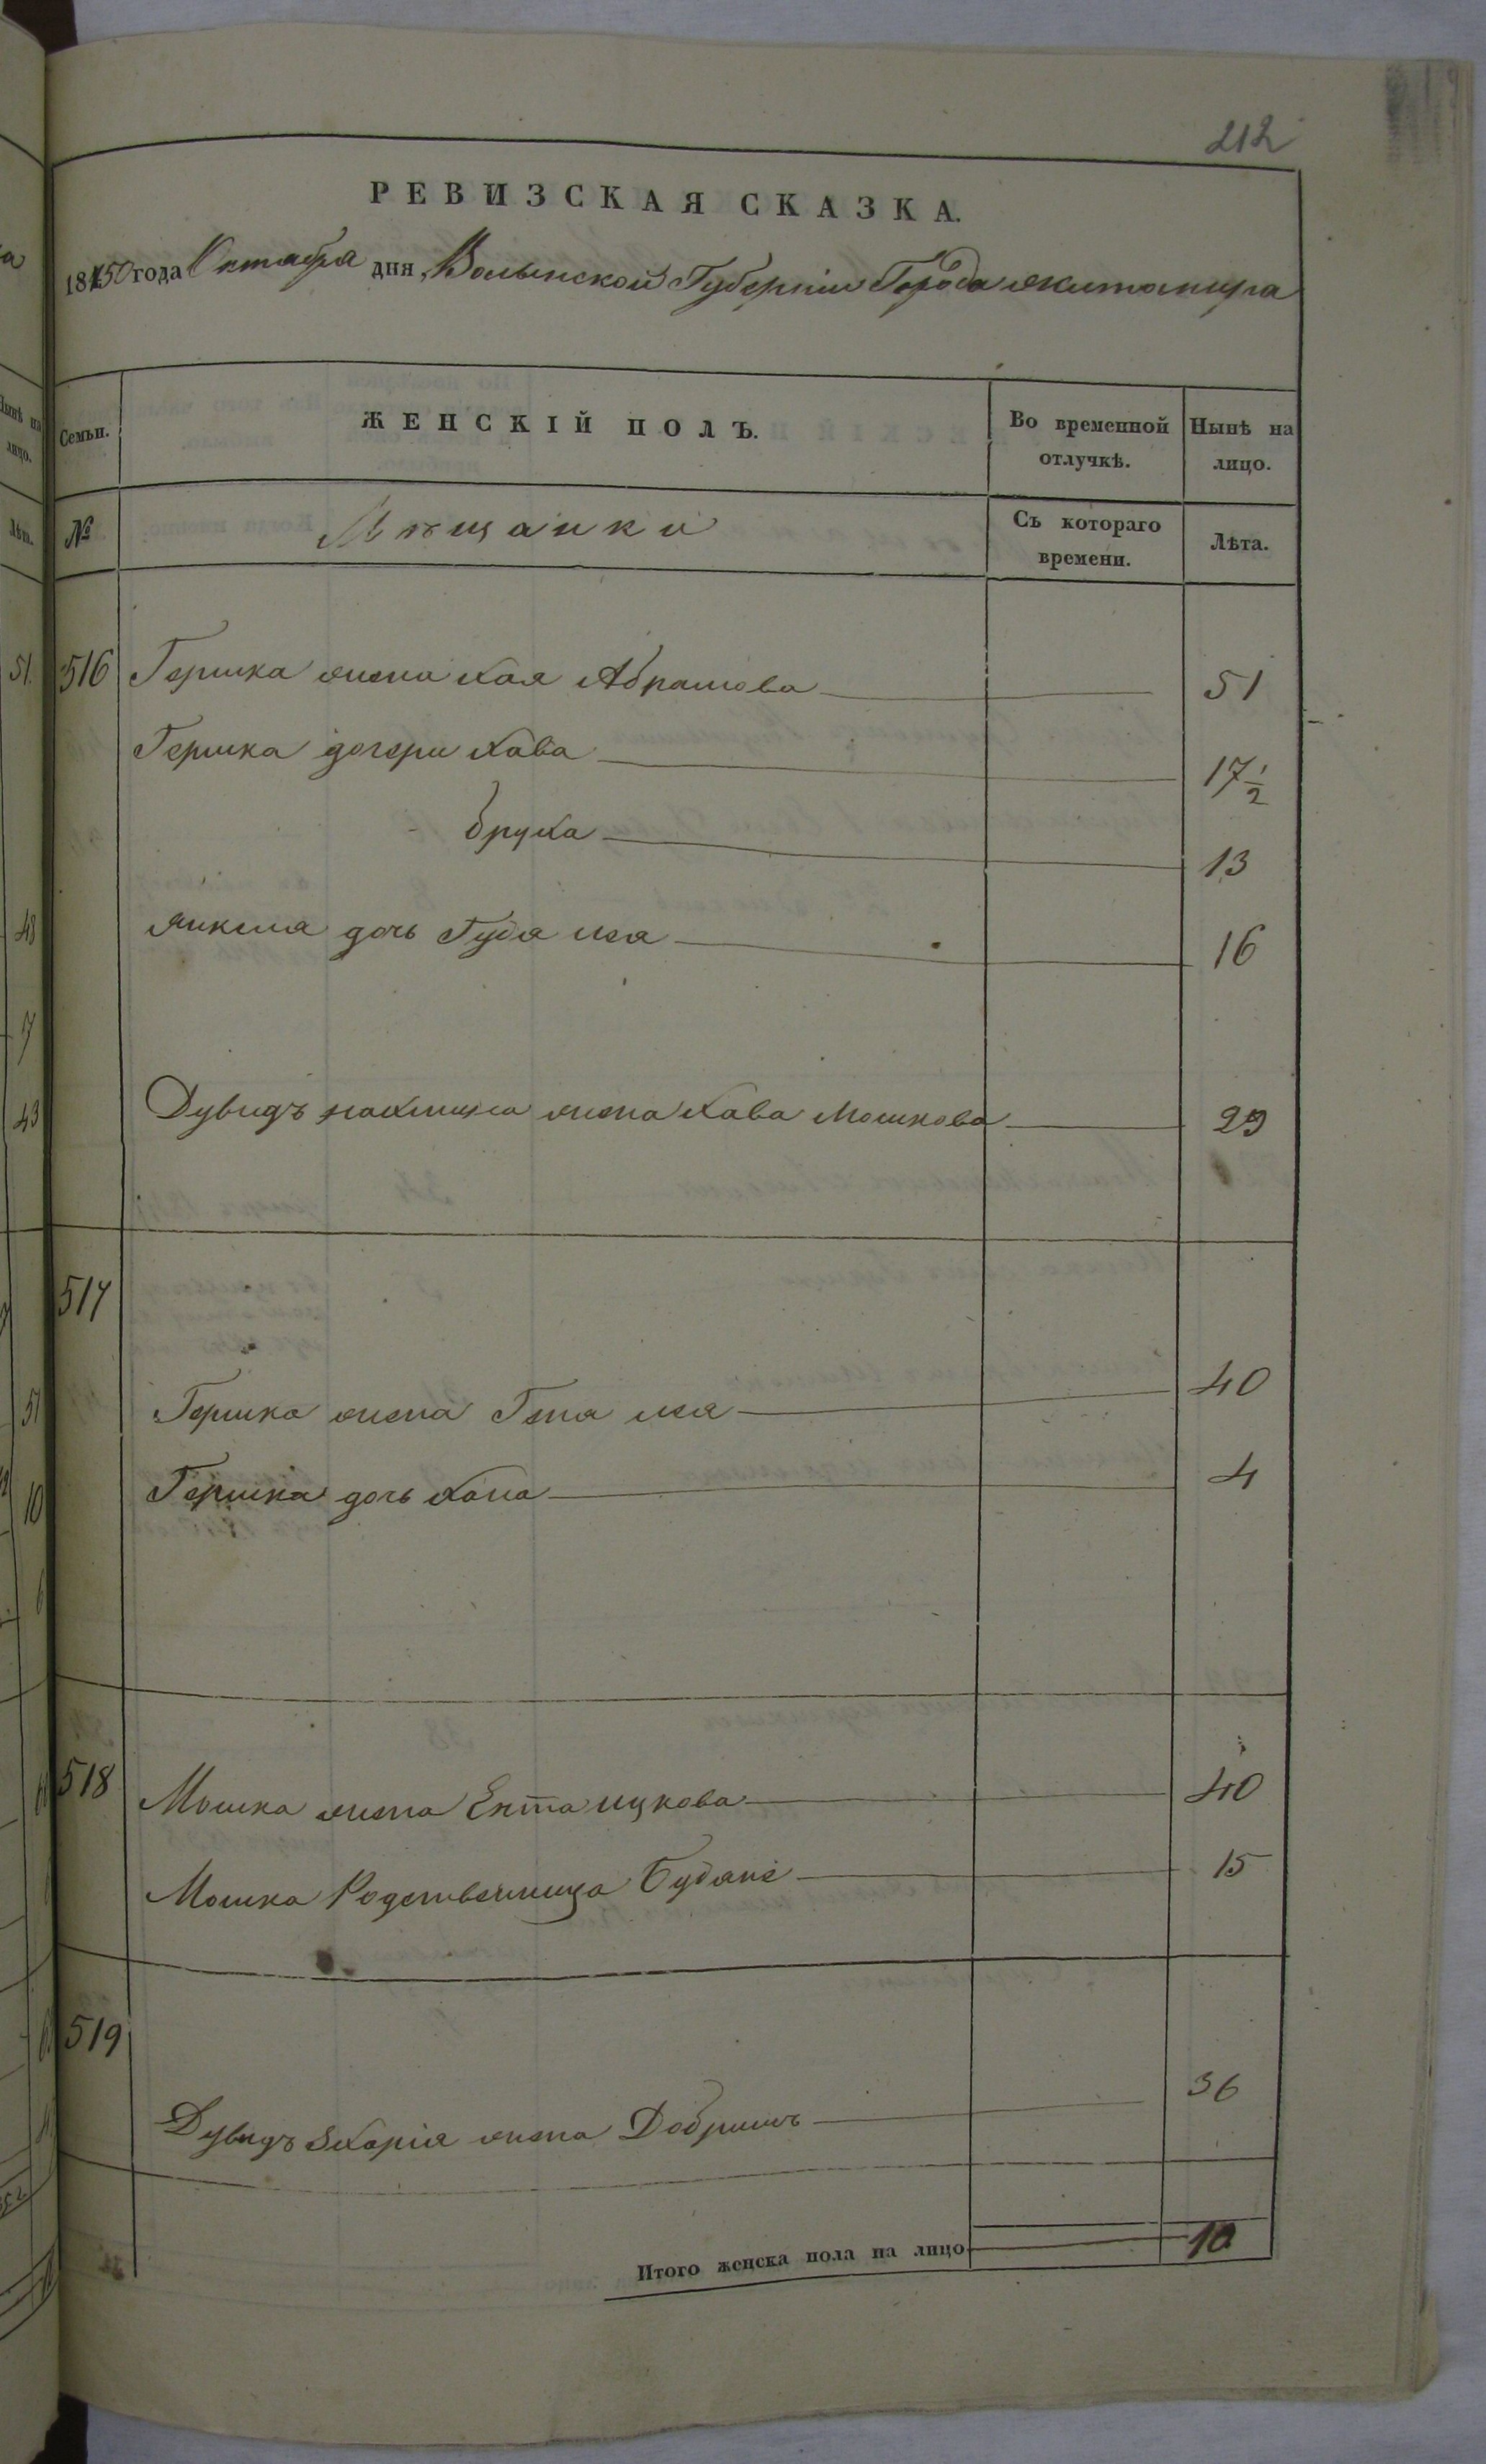 212
РЕВИЗСКАЯ СКАЗКА.
1850 года Октября дня, Волынской Губернiи Города Житомира
Семьи. ЖЕНСКIЙ ПОЛЪ. Во временной отлучкѣ. Нынѣ на лицо.
№ Мѣщанки Съ котораго времени. Лѣта.
516 Гершка жена Хая Абрамова 51
Гершка дочери Хава 17 1/2
Бруха 13
Янкеля дочь Гудя Лея 16
Дувидъ Нахмина жена Хава Мошкова 29
517
Гершка жена Гена Лея 40
Гершка дочь Хана 4
518 Мошка жена Ента Ицкова 40
Мошка Родственница Будяне 15
519
Дувидъ Зхарiя жена Добришъ 36
Итого женска пола на лицо 10